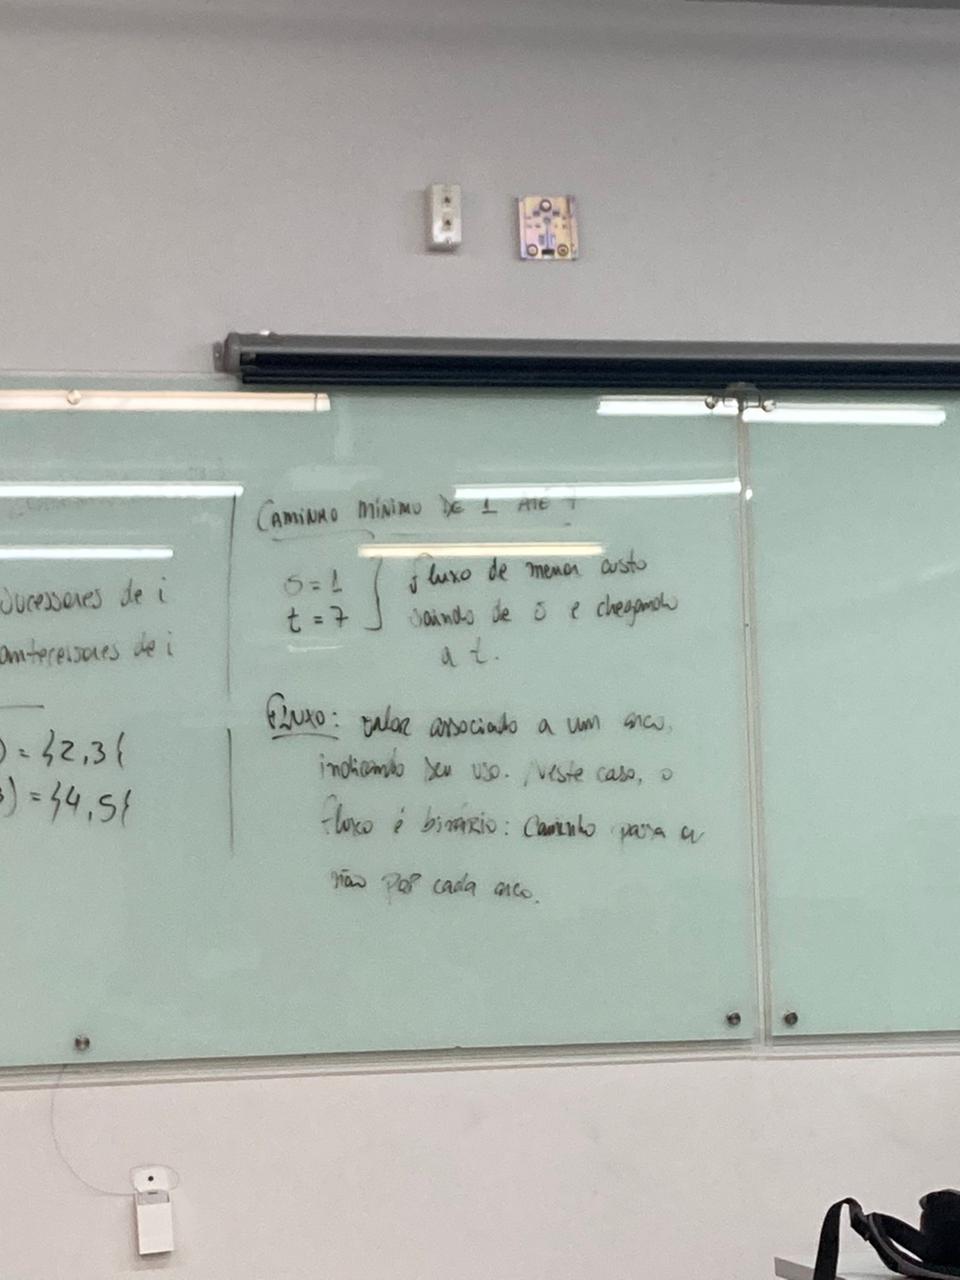 sucessores de i
antecessores de i
) = {2,3}
3) = {4,5}
CAMINHO MÍNIMO DE 1 ATÉ 7
s = 1
t = 7
fluxo de menor custo
saindo de s e chegando
a t.
FLUXO: valor associado a um arco,
indicando seu uso. Neste caso, o
fluxo é binário: Caminho passa ou
não por cada arco.